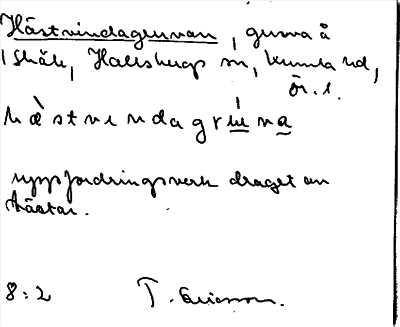 Hästvindagruvan, gruva å
1 skåk, Hallsbergs sn, Kumla hd,
ör. l.
hæ̀stvindagrúvna
uppfordringsverk draget av
hästar.
8:2
T. Ericsson.